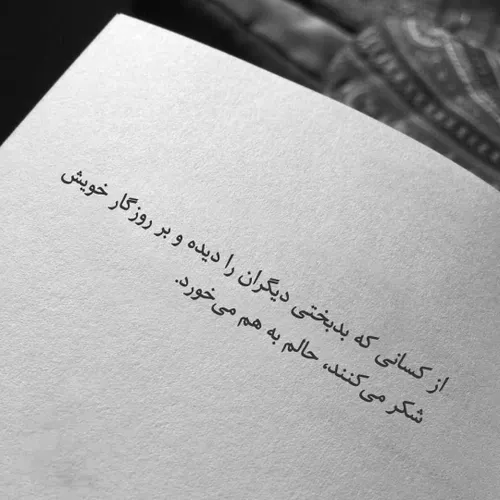 از کسانی که بدبختی دیگران را دیده و بر روزگار خویش
شکر می‌کنند، حالم به هم می‌خورد.